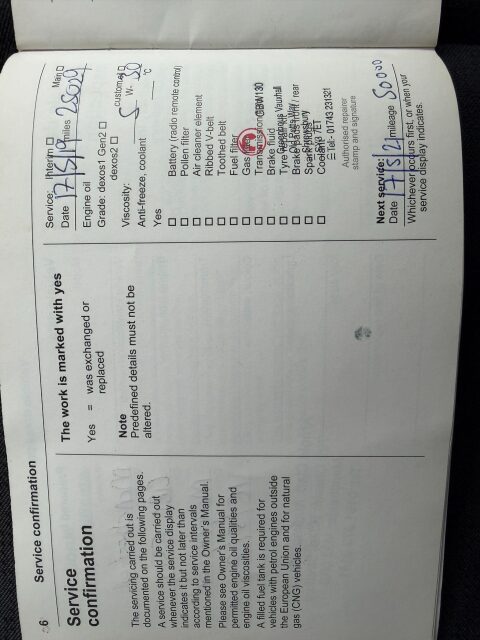 6
Service confirmation
Service
confirmation
The servicing carried out is
documented on the following pages.
A service should be carried out
whenever the service display
indicates it but not later than
according to service intervals
mentioned in the Owner's Manual.
Please see Owner's Manual for
permitted engine oil qualities and
engine oil viscosities.
A filled fuel tank is required for
vehicles with petrol engines outside
the European Union and for natural
gas (CNG) vehicles.
The work is marked with yes
Yes = was exchanged or
replaced
Note
Predefined details must not be
altered.
Service: Interim □ Main □
Date 17/5/19 miles 28029
Engine oil
Grade: dexos1 Gen2 □
dexos2 □ customer □
Viscosity: 5 W- 30
Anti-freeze, coolant °C
Yes
□ Battery (radio remote control)
□ Pollen filter
□ Air cleaner element
□ Ribbed V-belt
□ Toothed belt
□ Fuel filter
□ Gas
□ GBW130
□ Brake fluid
□ Tyre Vauxhall
□ Brake / rear
□ Spark
□ Cool
Tel:- 01743 231321
Authorised repairer
stamp and signature
Next service:
Date 17/5/21 mileage 50000
Whichever occurs first, or when your
service display indicates.